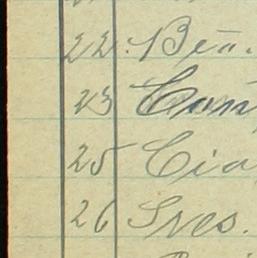 22. Bēn.
23 Com
25 Cia
26 Sres.